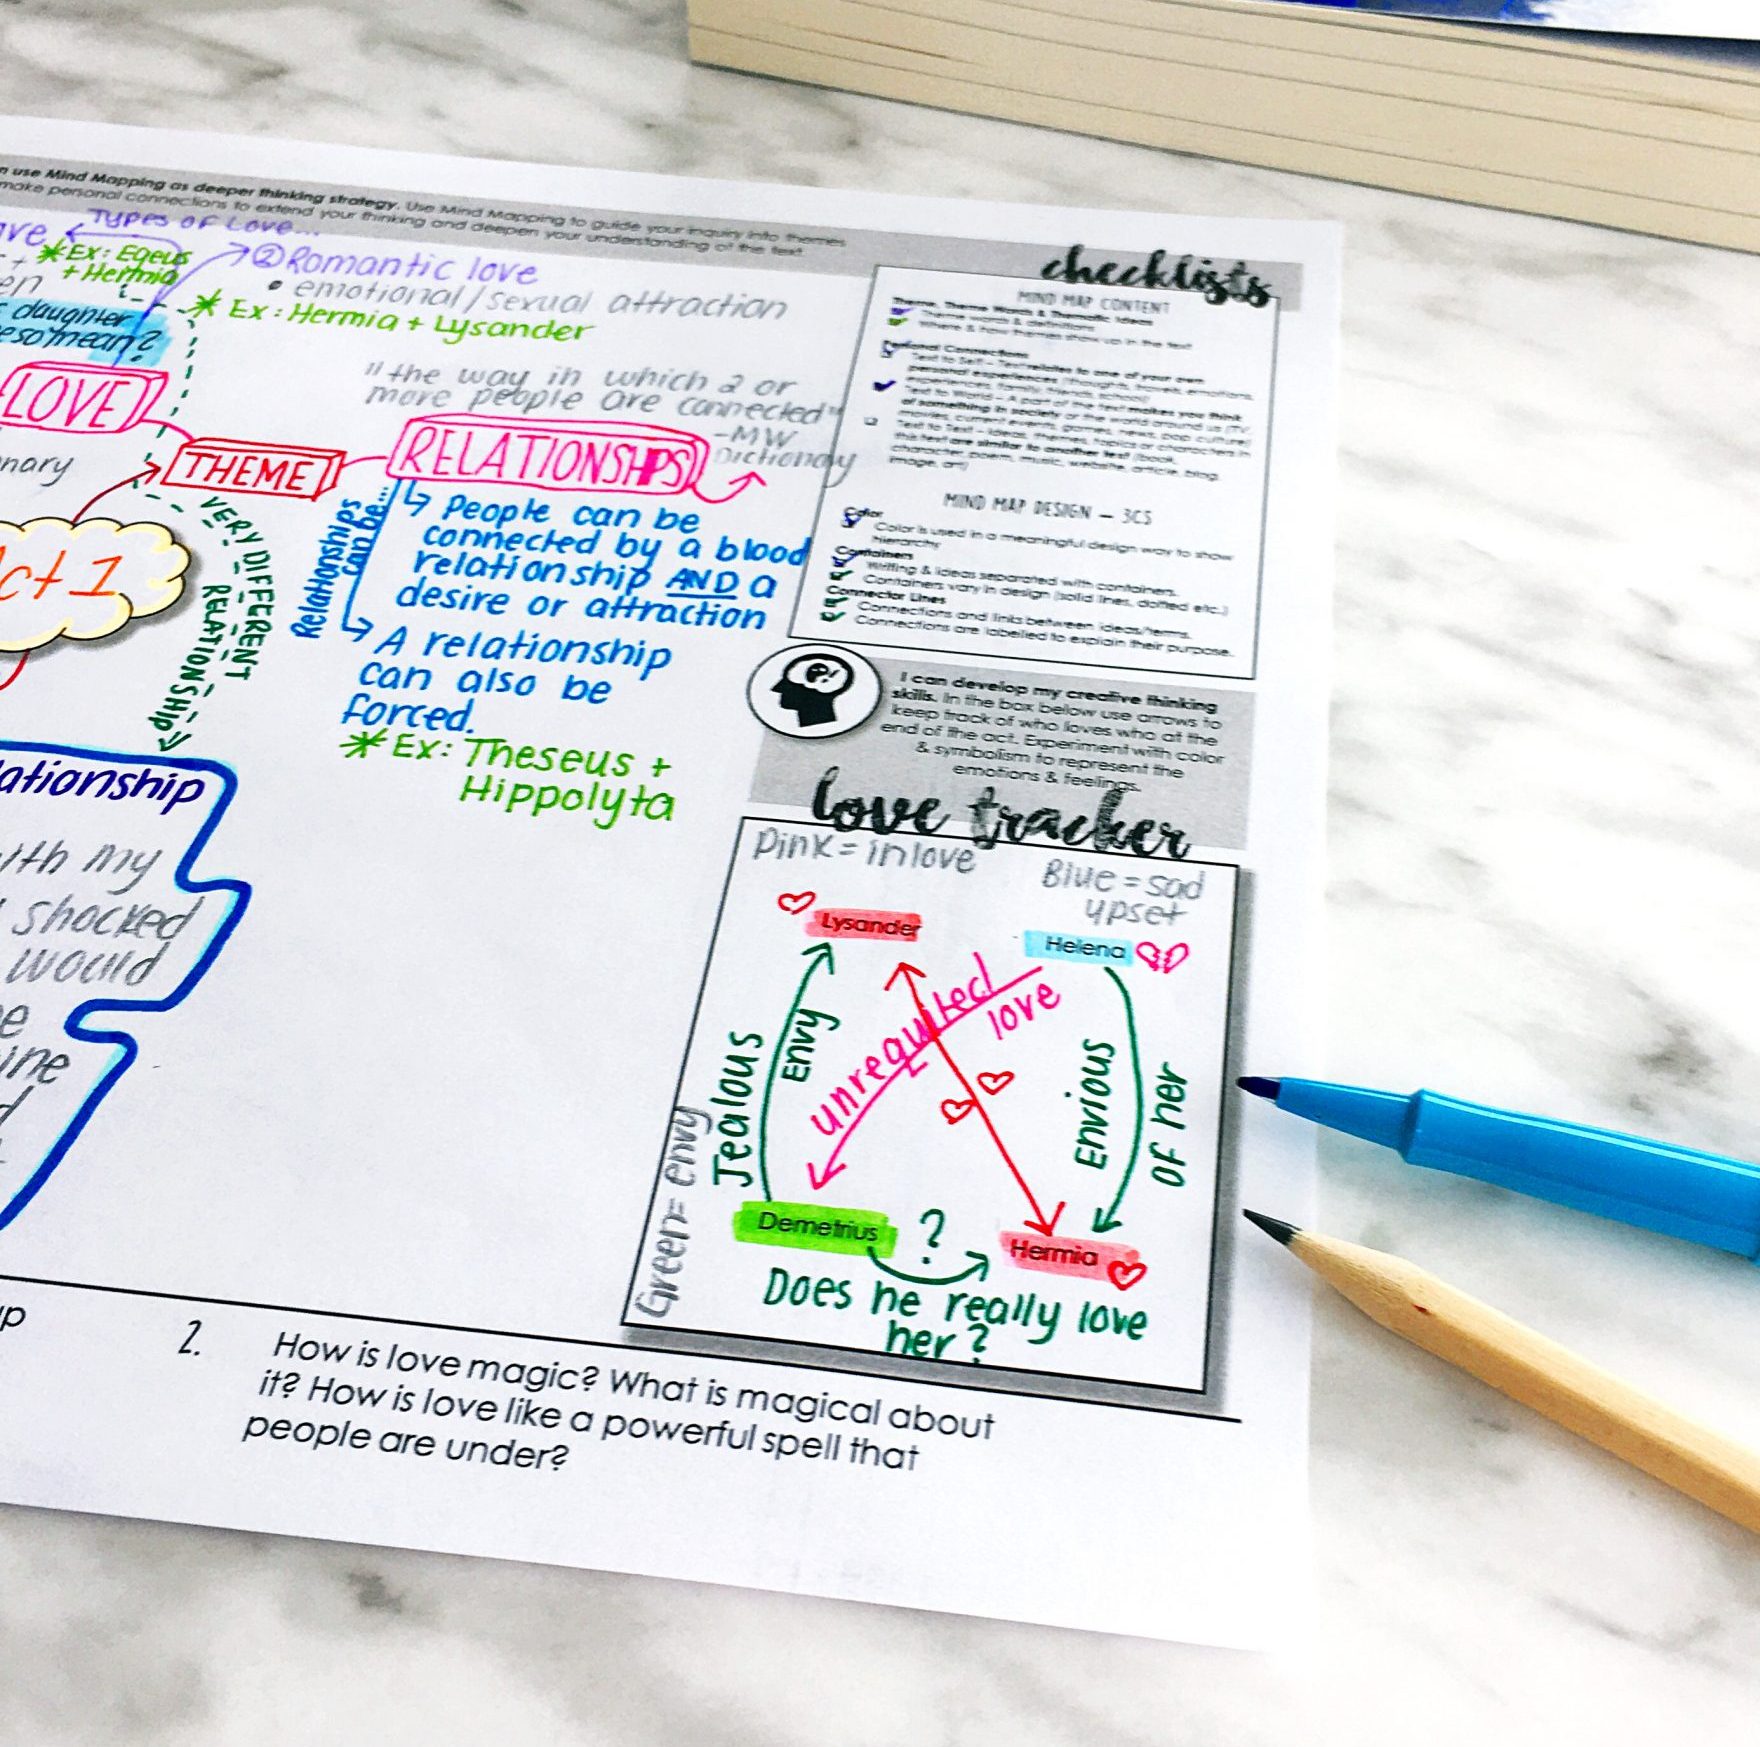 use Mind Mapping as deeper thinking strategy. Use Mind Mapping to guide your inquiry into themes
make personal connections to extend your thinking and deepen your understanding of the text.
Types of Love...
*Ex: Egeus
+ Hermia
② Romantic love
• emotional/sexual attraction
* Ex: Hermia + Lysander
daughter
mean?
LOVE
"the way in which 2 or
more people are connected"
-MW
Dictionary
THEME
RELATIONSHIPS
Act 1
VERY DIFFERENT
RELATIONSHIP
Relationships
can be...
People can be
connected by a blood
relationship AND a
desire or attraction
A relationship
can also be
forced.
* Ex: Theseus +
Hippolyta
ationship
my
shocked
would
checklists
MIND MAP CONTENT
Theme, Theme Words & Thematic Ideas
Theme words & definitions
Where & how themes show up in the text
Personal Connections
Text to Self – Text relates to one of your own
personal experiences (thoughts, travels, emotions,
experiences, family, friends, school)
Text to World – A part of the text makes you think
of something in society or the world around us (TV,
movies, current events, games, news, pop culture)
Text to Text – Ideas, themes, topics or characters in
this text are similar to another text (book,
character, poem, music, website, article, blog,
image, art)
MIND MAP DESIGN – 3CS
Color
Color is used in a meaningful design way to show
hierarchy
Containers
Writing & ideas separated with containers.
Containers vary in design (solid lines, dotted etc.)
Connector Lines
Connections and links between ideas/terms.
Connections are labelled to explain their purpose.
I can develop my creative thinking
skills. In the box below use arrows to
keep track of who loves who at the
end of the act. Experiment with color
& symbolism to represent the
emotions & feelings.
love tracker
Pink = in love
Blue = sad
upset
Green = envy
Lysander
Helena
Jealous
Envy
unrequited
love
Envious
of her
Demetrius
?
Hermia
Does he really love
her?
2. How is love magic? What is magical about
it? How is love like a powerful spell that
people are under?